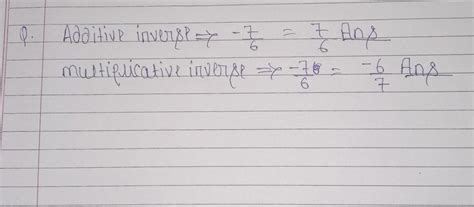 Q. Additive inverse ⇒ -7/6 = 7/6 Ans
multiplicative inverse ⇒ -7/6 = -6/7 Ans